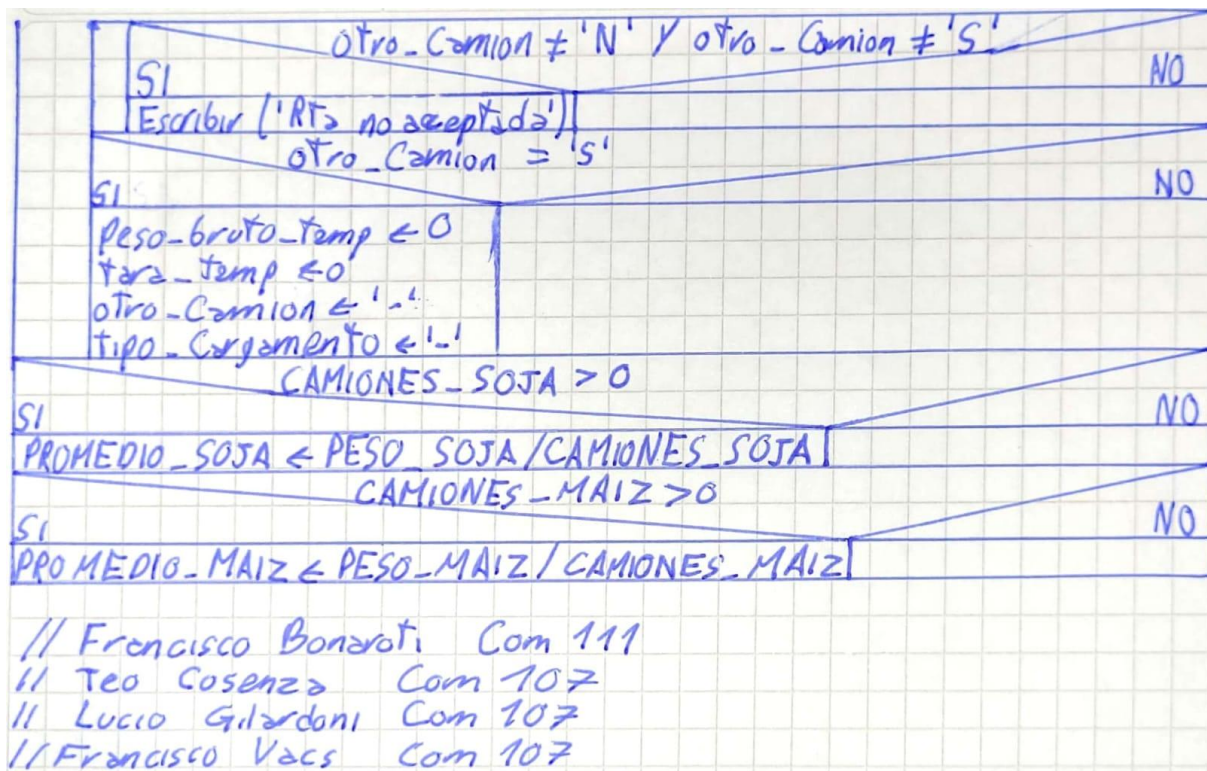 otro_Camion ≠ 'N' Y otro_Camion ≠ 'S'
SI NO
Escribir ('Rta no aceptada')
otro_Camion = 'S'
SI NO
Peso_bruto_temp ← 0
tara_temp ← 0
otro_Camion ← '-'
tipo_Cargamento ← '-'
CAMIONES_SOJA > 0
SI NO
PROMEDIO_SOJA ← PESO_SOJA/CAMIONES_SOJA
CAMIONES_MAIZ > 0
SI NO
PROMEDIO_MAIZ ← PESO_MAIZ/CAMIONES_MAIZ
// Francisco Bonaroti Com 111
// Teo Cosenza Com 107
// Lucio Gilardoni Com 107
// Francisco Vacs Com 107